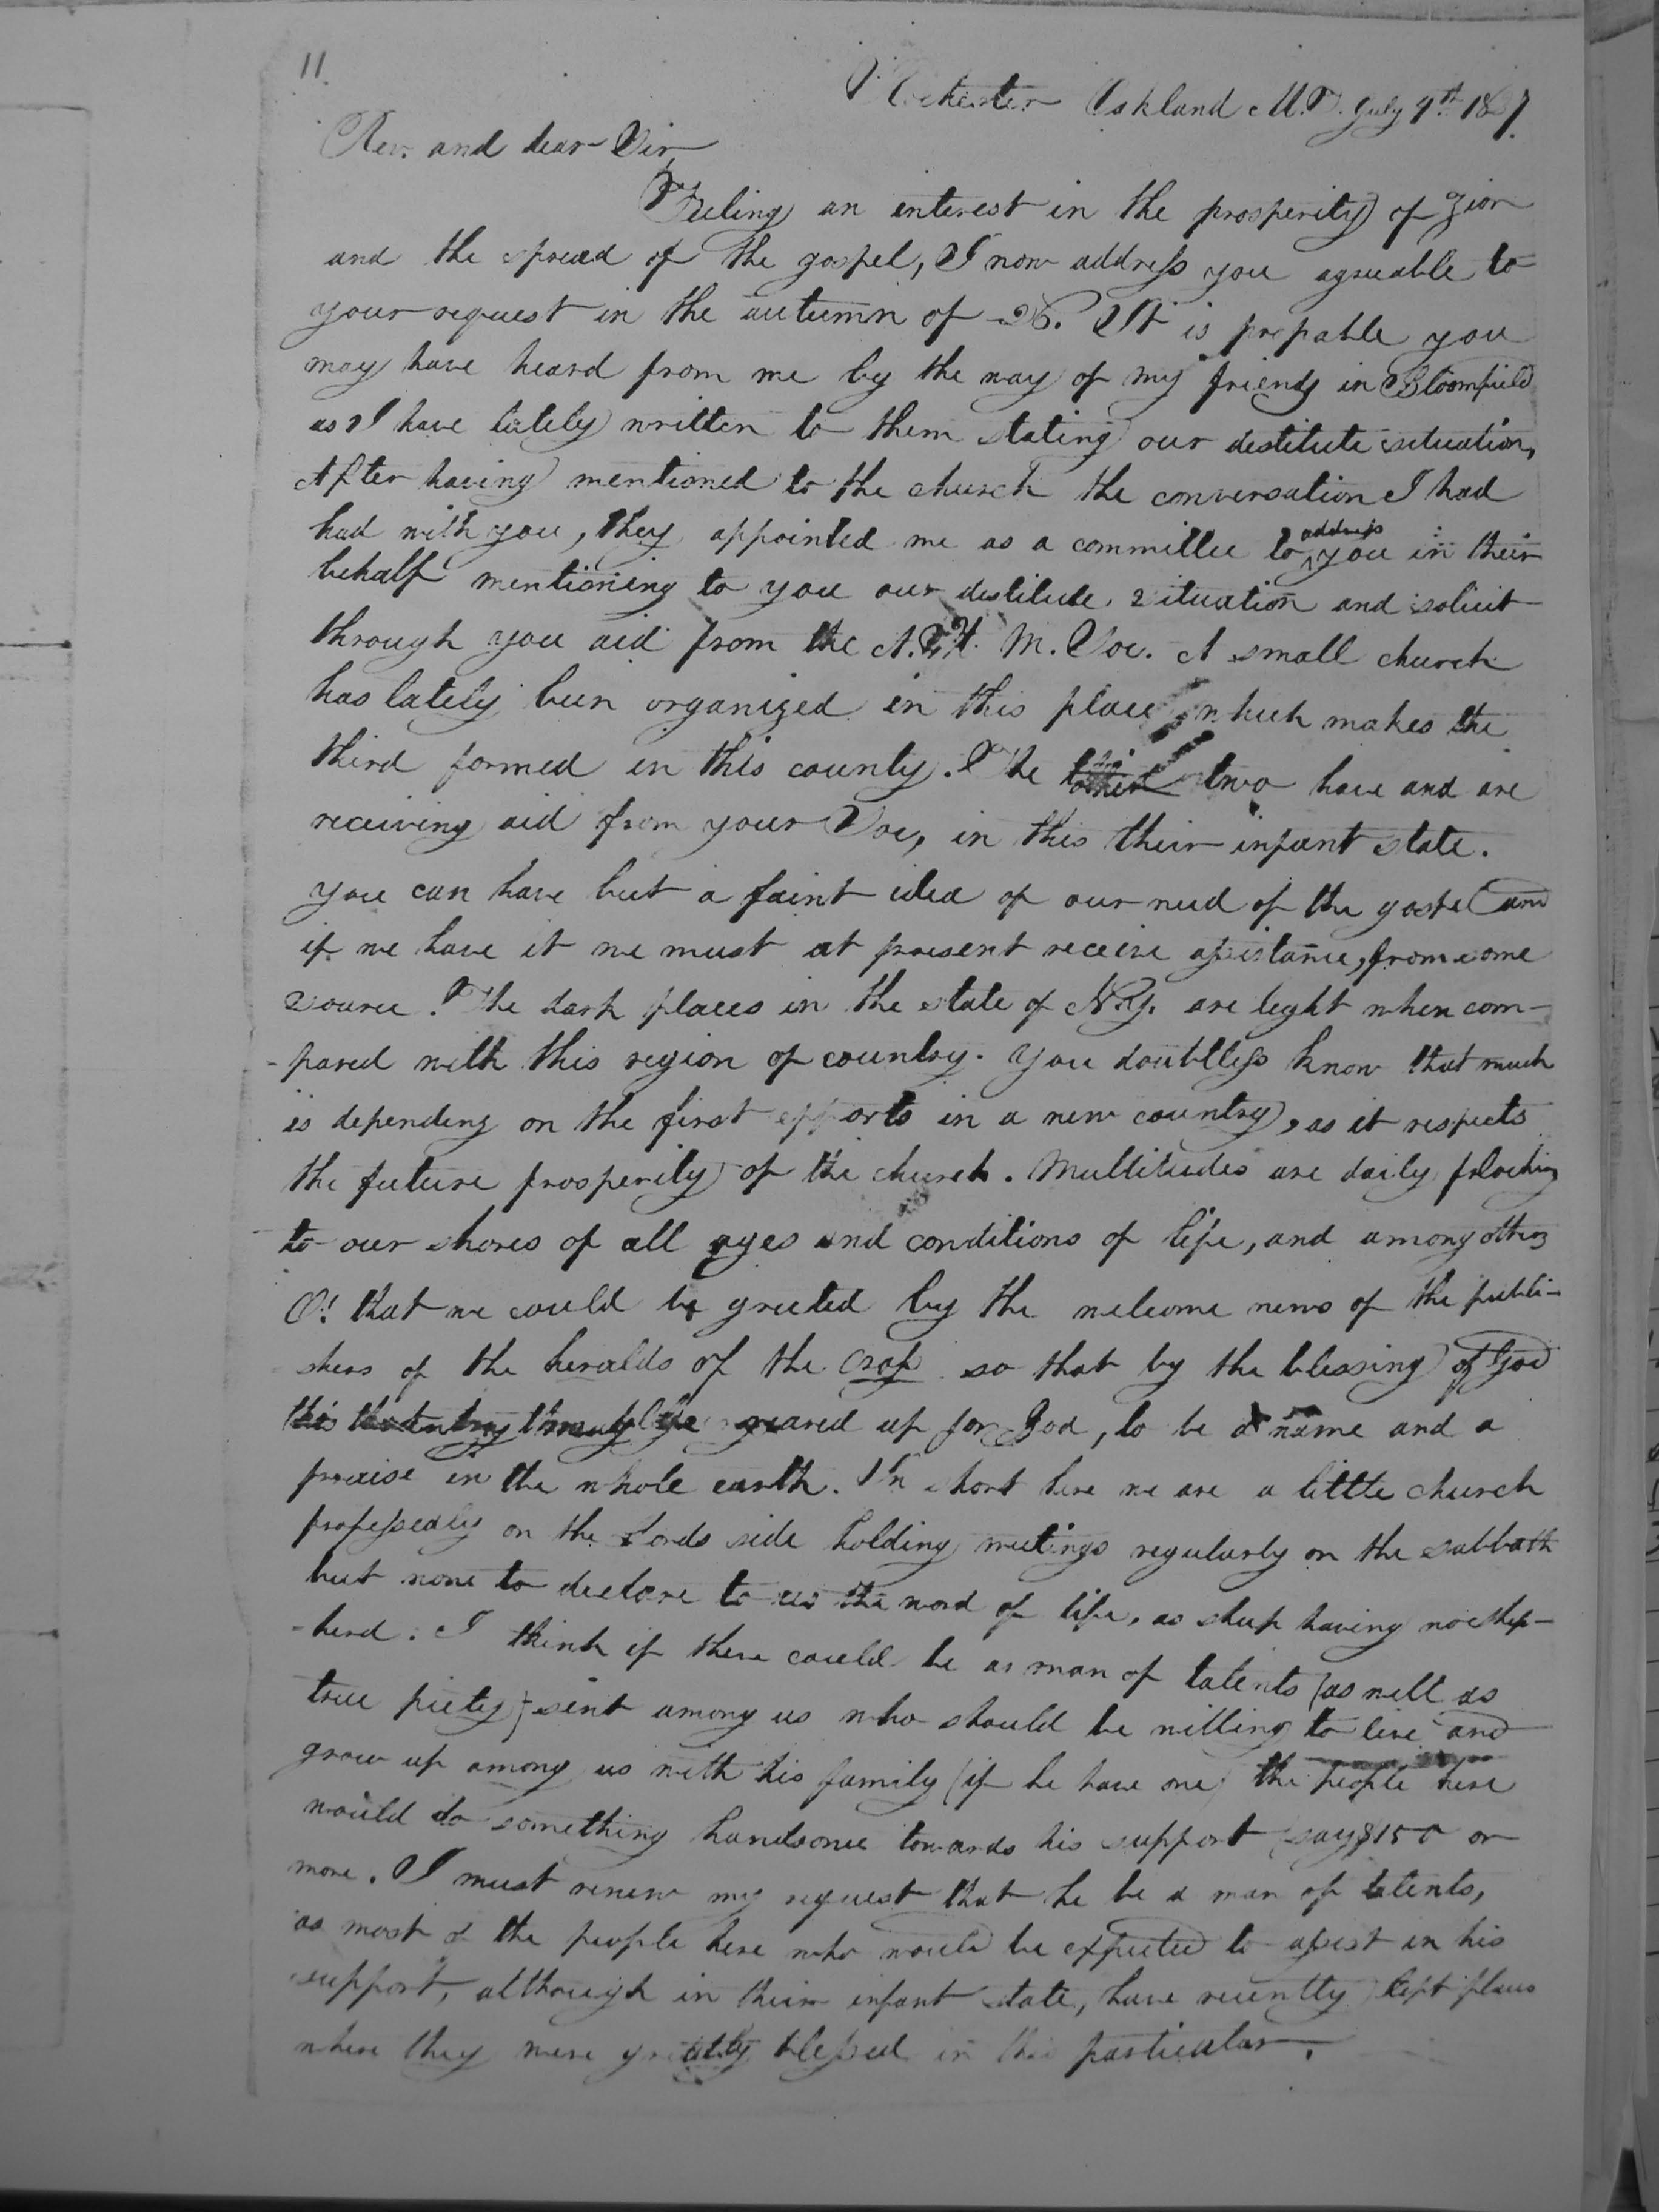 11
Rochester Oakland M.T. July 9th 1827.
Rev. and dear Sir,
Feeling an interest in the prosperity of Zion
and the spread of the gospel, I now address you agreable to
your request in the autumn of -26. It is propable you
may have heard from me by the way of my friends in Bloomfield
as I have lately written to them stating our destitute situation,
After having mentioned to the church the conversation I had
had with you, they appointed me as a committee to address you in their
behalf mentioning to you our destitute situation and solicit
through you aid from the A. H. M. Soc. A small church
has lately been organized in this place which makes the
third formed in this county. The other two have and are
receiving aid from your Soc, in this their infant state.
you can have but a faint idea of our need of the gospel and
if we have it we must at present receive assistance, from some
source. The dark places in the state of N.Y. are light when com-
-pared with this region of country. you doubtless know that much
is depending on the first efforts in a new country, as it respects
the future prosperity of the church. Multitudes are daily flocking
to our shores of all ages and conditions of life, and among others
O! that we could be greeted by the welcome news of the publi-
shers of the heralds of the cross so that by the blessing of God
this may be reared up for God, to be a name and a
praise in the whole earth. In short here we are a little church
professedly on the Lords side holding meetings regularly on the sabbath
but none to declare to us the word of life, as sheep having no shep-
-herd. I think if there could be a man of talents (as well as
true piety) sent among us who should be willing to live and
grow up among us with his family (if he have one) the people here
would do something handsome towards his support (say \$150 or
more. I must renew my request that he be a man of talents,
as most of the people here who would be expected to assist in his
support, although in their infant state, have recently left places
where they were greatly blessed in this particular.